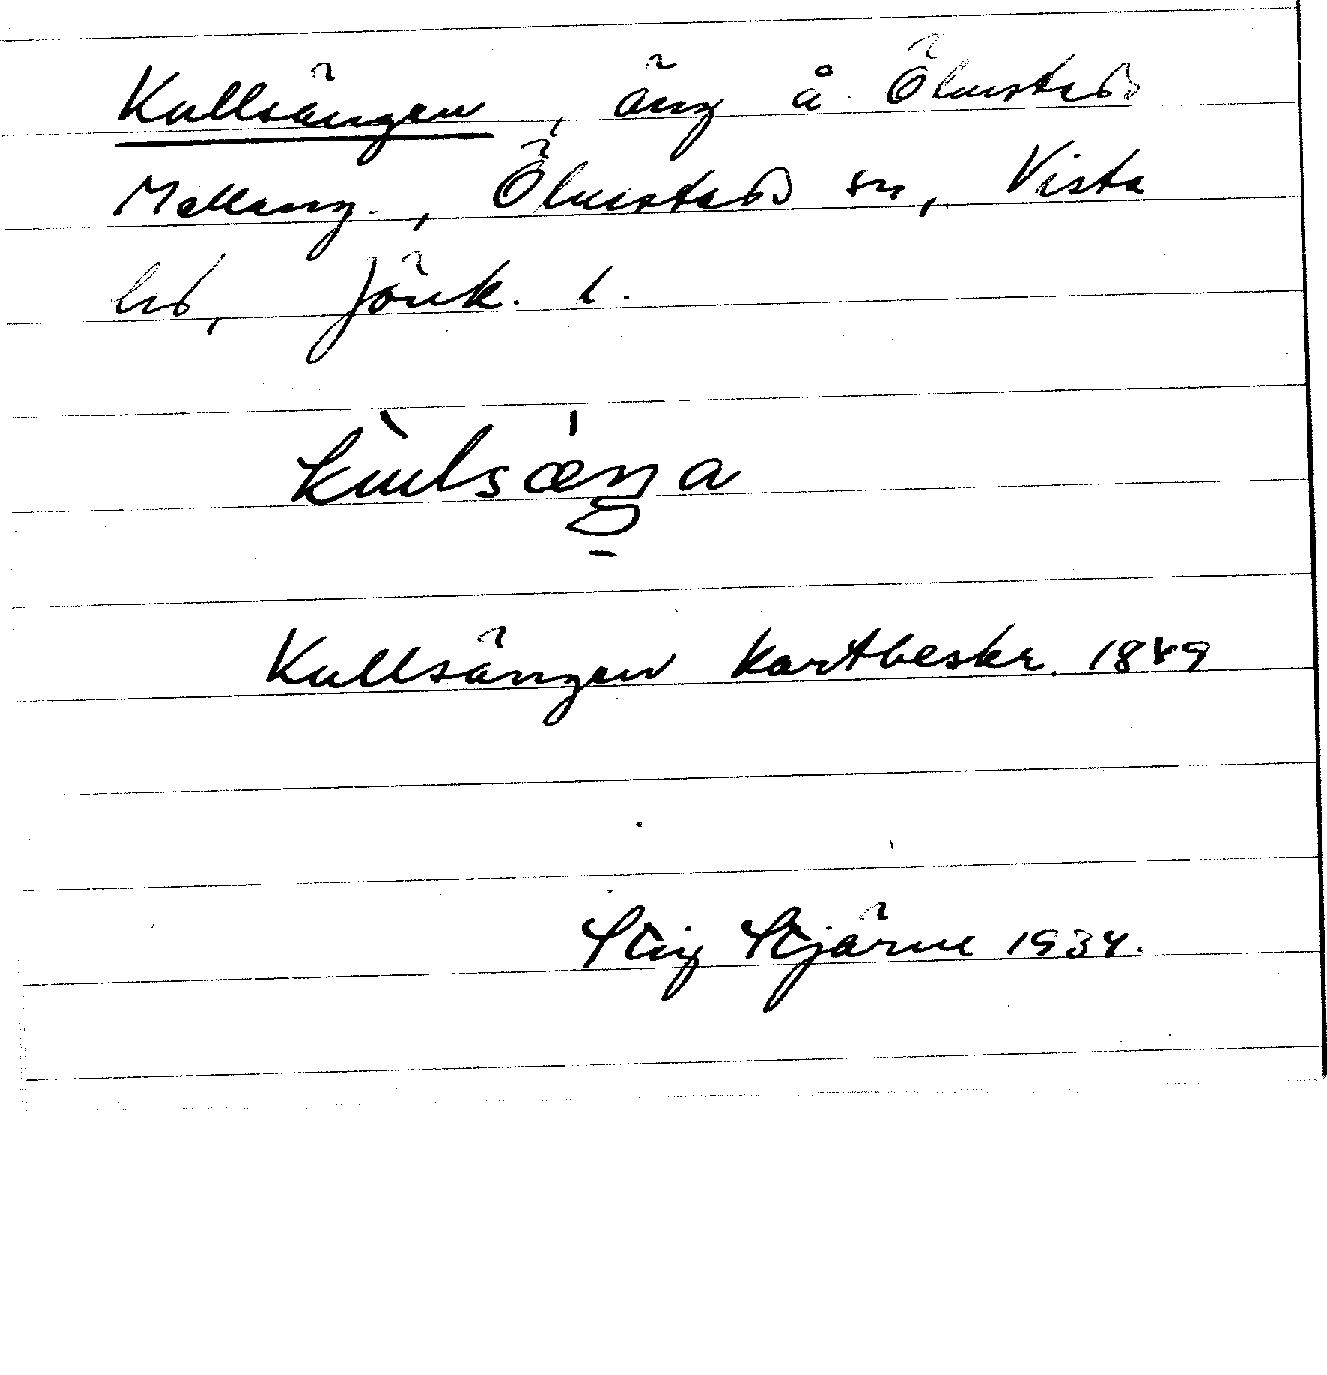 Kullsängen, äng å Ölmstads
Mellang., Ölmstads sn, Vista
hd, Jönk. l.
Kullsängen Kartbeskr. 1849
Stig Stjärne 1934.